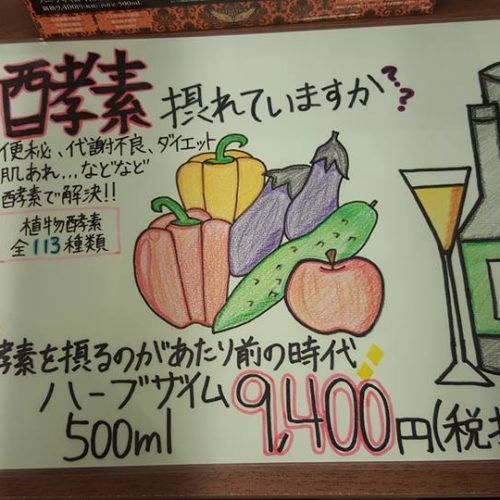 価格9,400円(税抜) 内容量 500mL
酵素 摂れていますか??
便秘、代謝不良、ダイエット
肌あれ...などなど
酵素で解決!!
植物酵素
全113種類
酵素を摂るのがあたり前の時代
ハーブザイム
500ml
9,400円(税抜